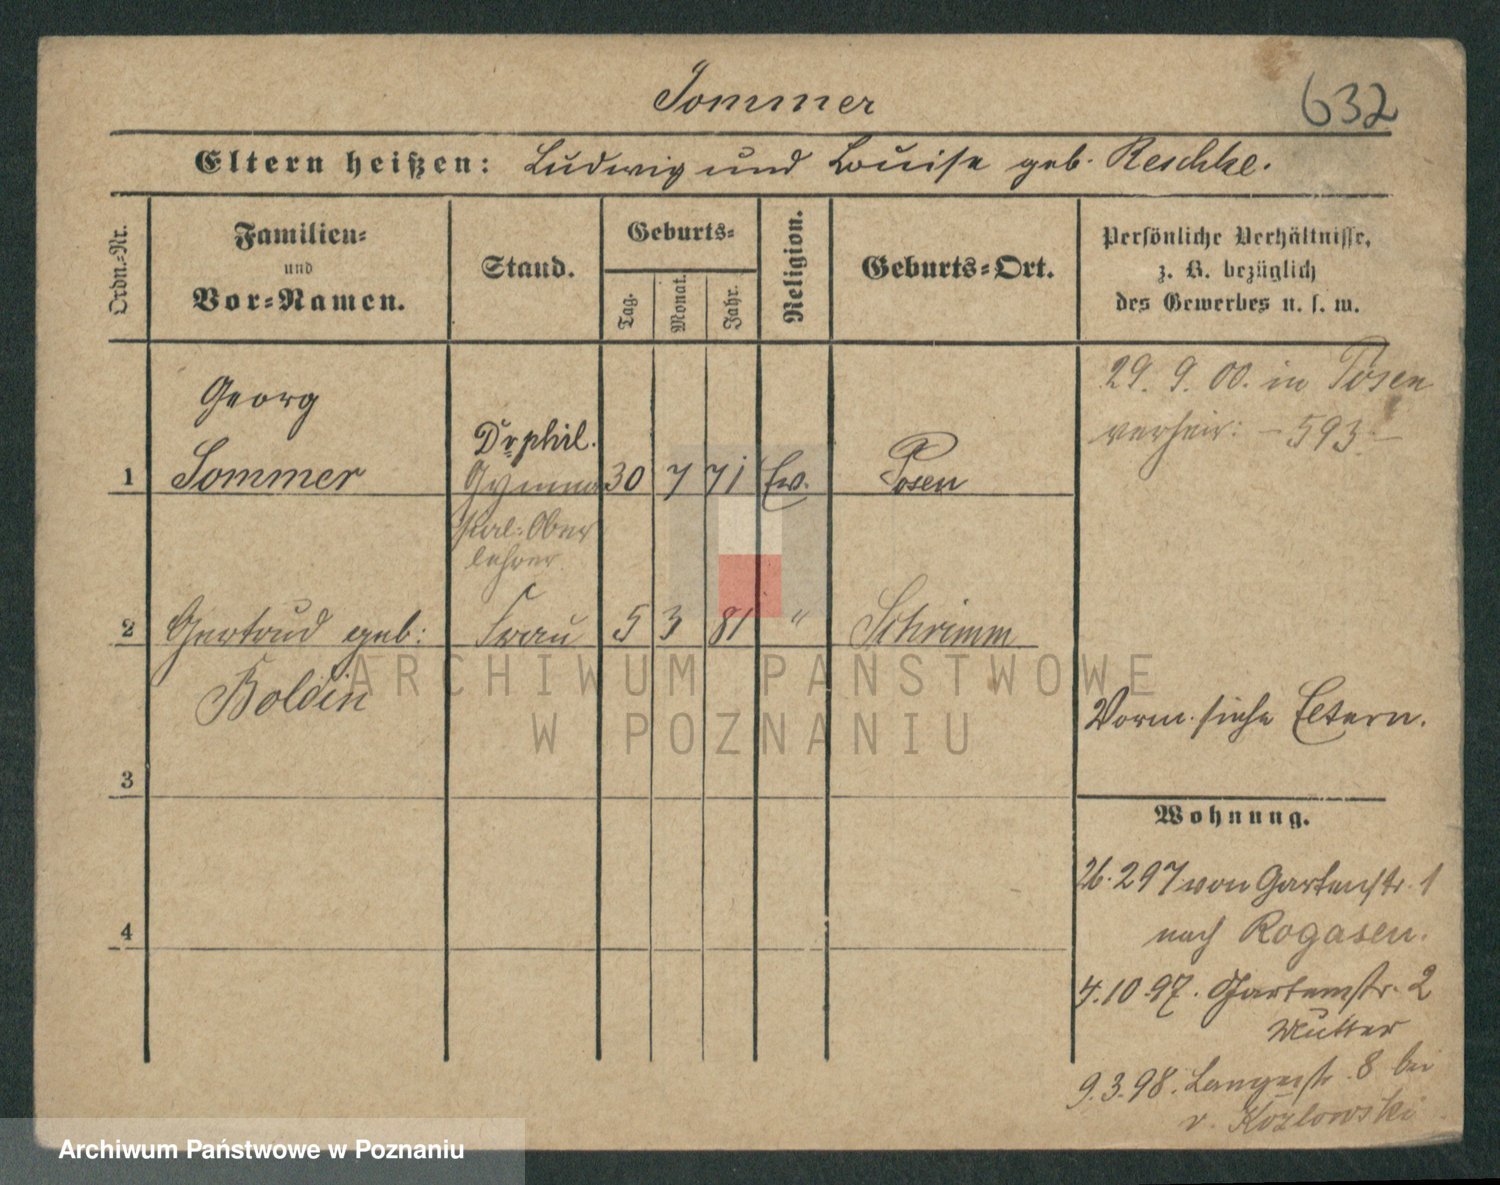 Sommer
632
Eltern heißen: Ludwig und Louise geb. Reschke.
Ordn.-Nr.
Familien-
und
Vor-Namen.
Stand.
Geburts-
Tag.
Monat.
Jahr.
Religion.
Geburts-Ort.
Persönliche Verhältnisse,
z. B. bezüglich
des Gewerbes u. s. w.
29. 9. 00. in Posen
verheir: - 593 -
Georg
Dr phil.
1 Sommer Gymna 30 7 71 Ev. Posen
sial-Ober
lehrer
2 Gertrud geb: Frau 5 3 81 " Schrimm
Boldin
ARCHIWUM PAŃSTWOWE
W POZNANIU
Vorm. siehe Eltern.
3
Wohnung.
26.2 97 von Gartenstr. 1
nach Rogasen.
4
4.10.97. Gartenstr. 2
Mutter
9.3.98. Langestr. 8 bei
v. Kozlowski
Archiwum Państwowe w Poznaniu